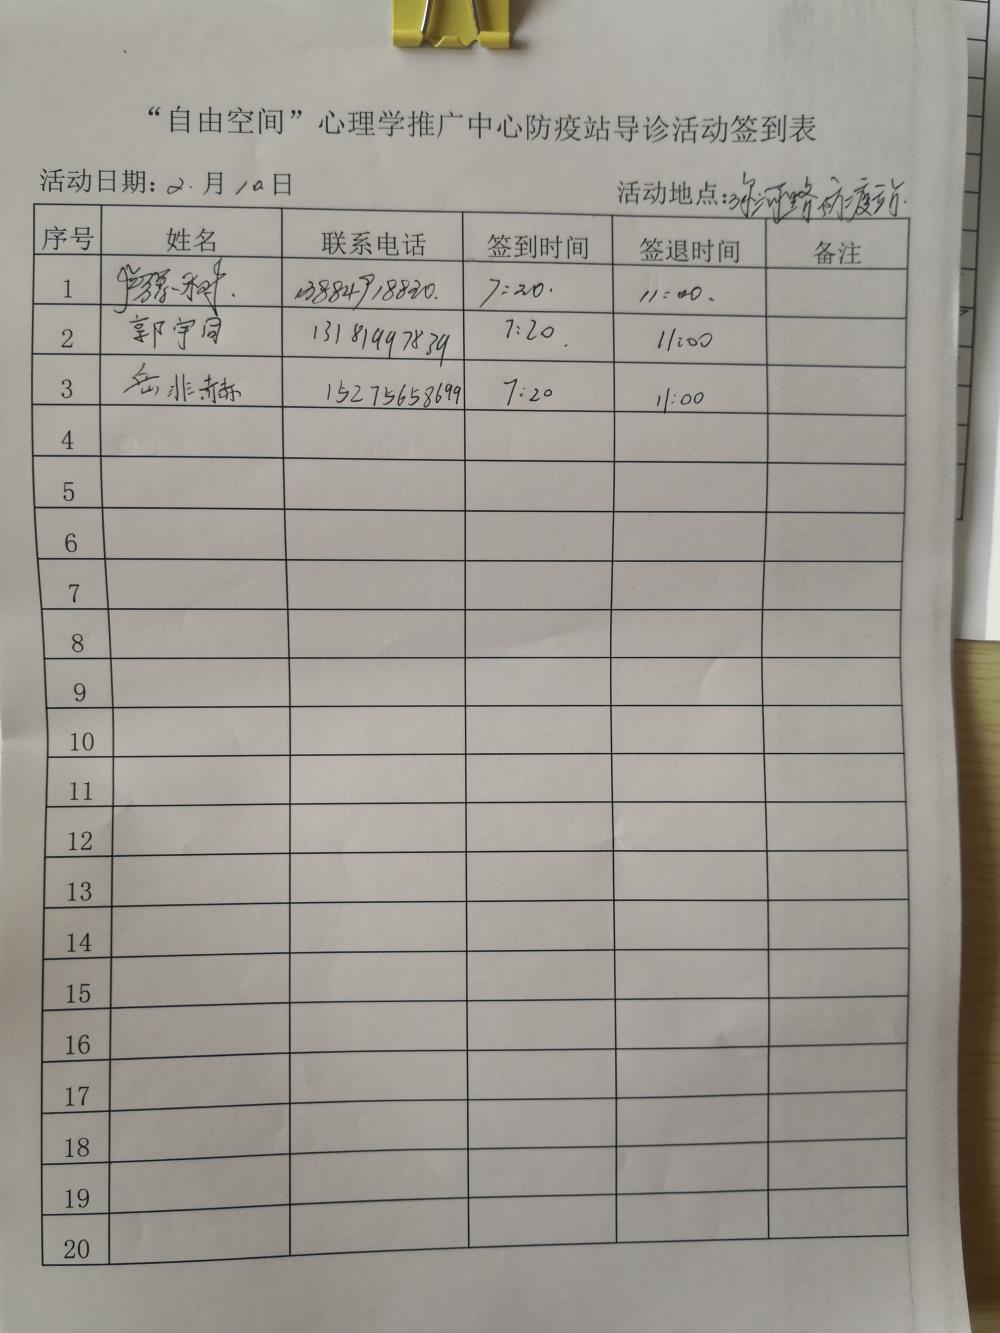 “自由空间”心理学推广中心防疫站导诊活动签到表
活动日期：2.月10日 活动地点：深河路防疫站.
序号 姓名 联系电话 签到时间 签退时间 备注
1 7:20. 11:00.
2 郭宇同 13181997839 7:20. 11:00
3 岳非赫 15275658699 7:20 11:00
4
5
6
7
8
9
10
11
12
13
14
15
16
17
18
19
20